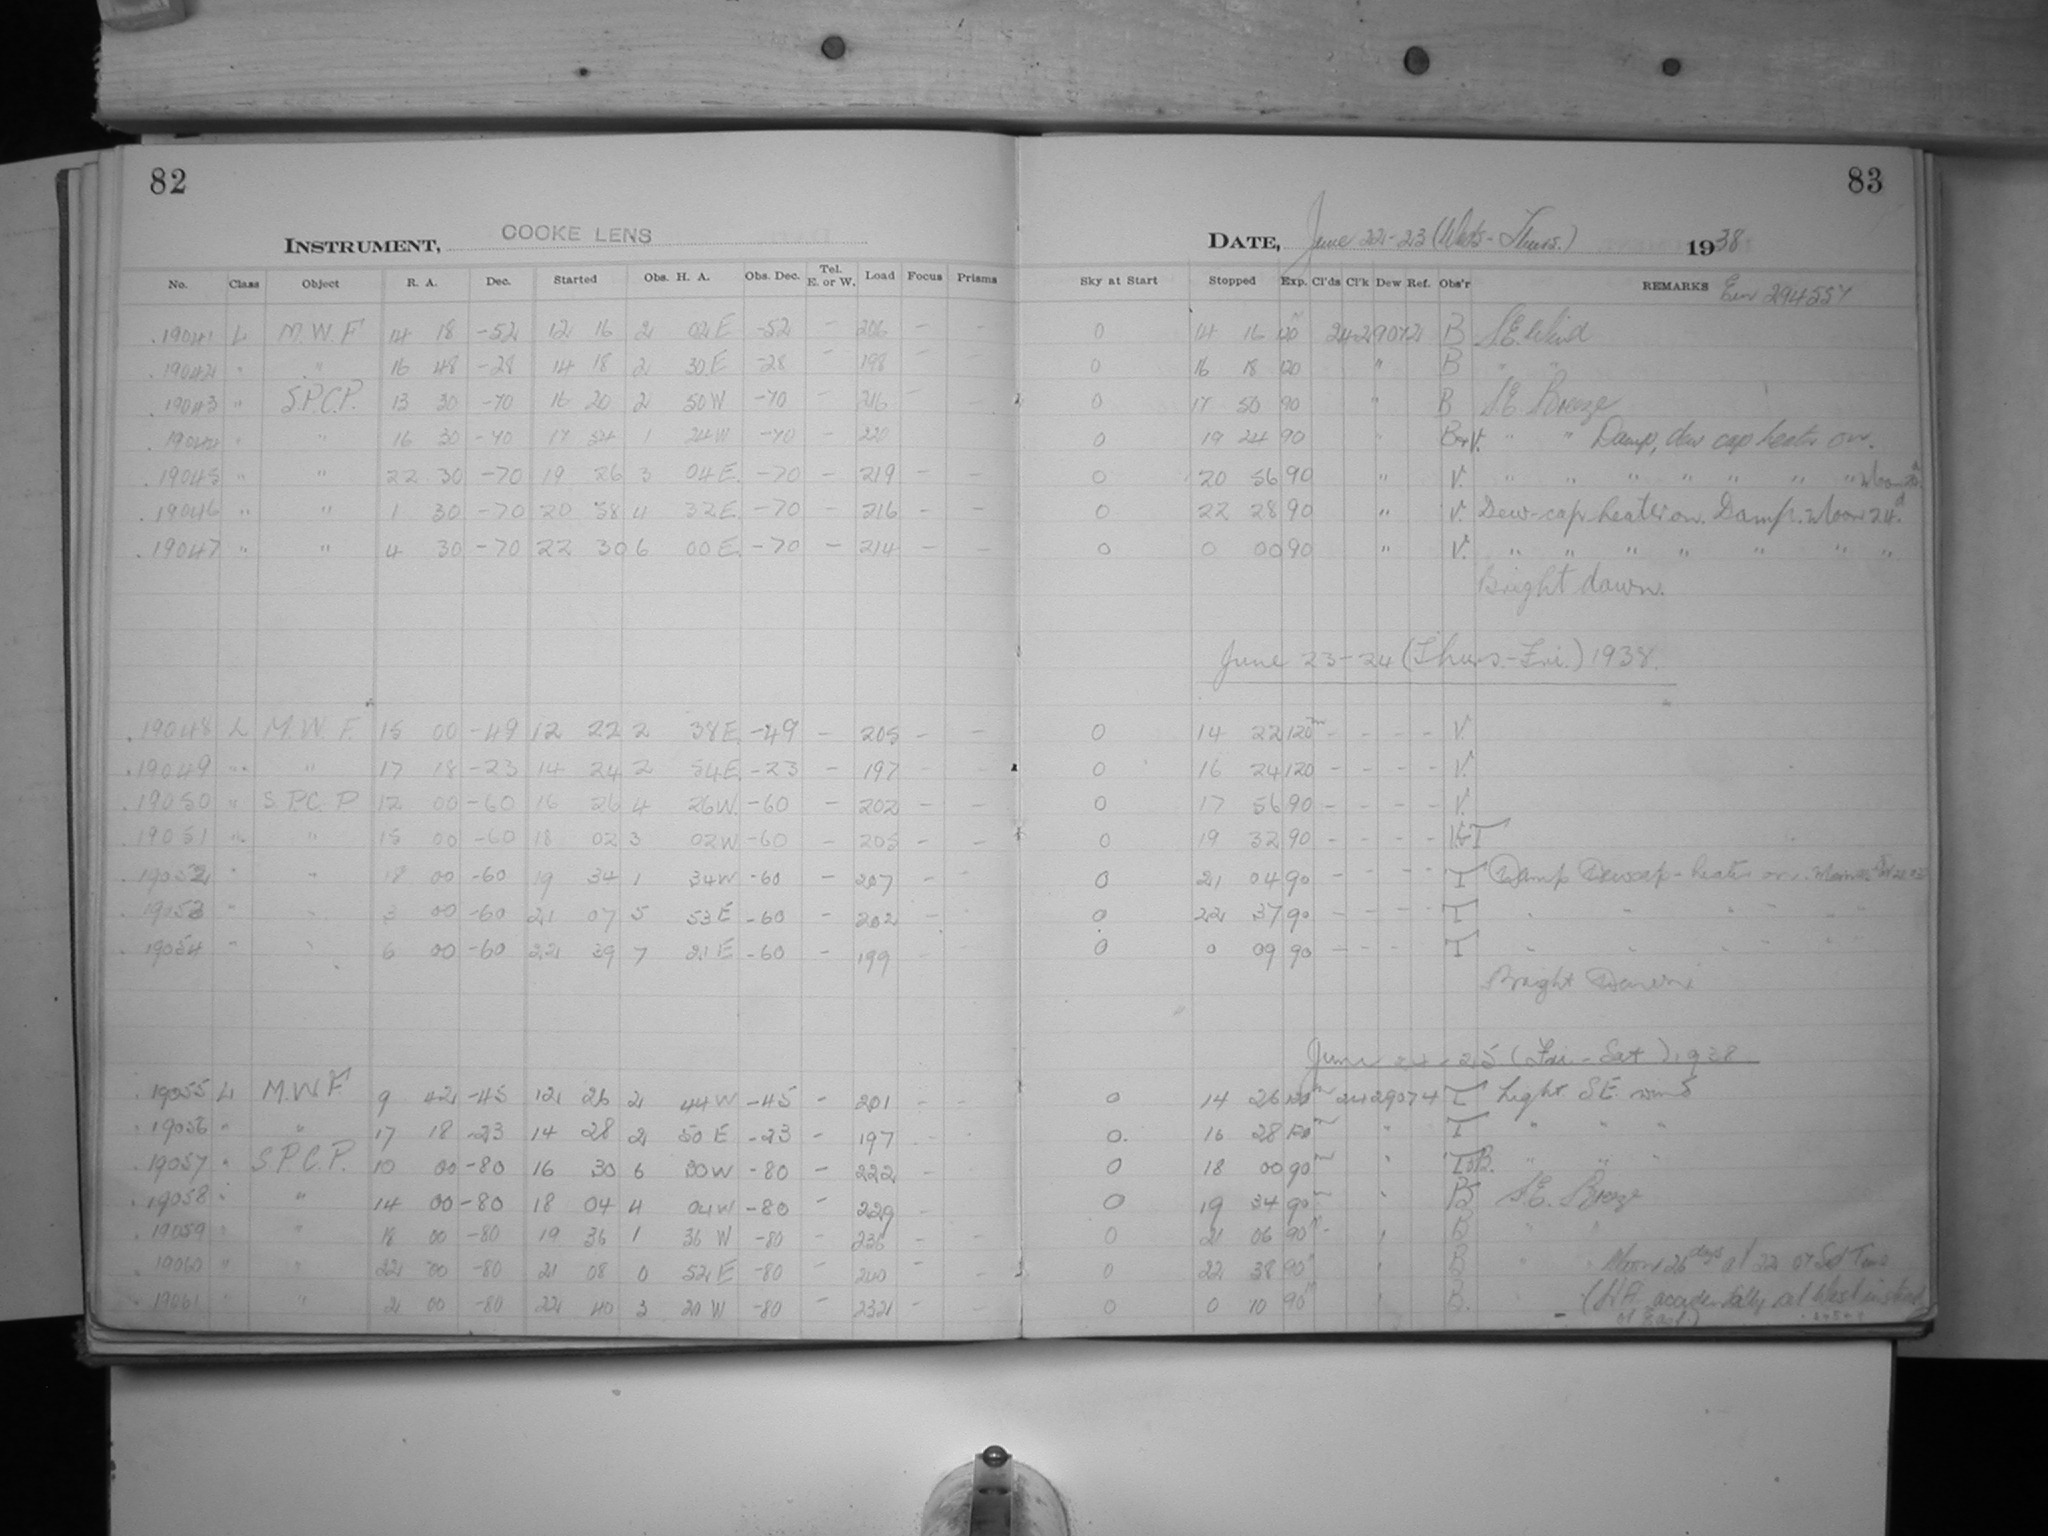 82
83
INSTRUMENT, COOKE LENS
DATE, June 22-23 (Weds-Thurs.) 1938
No. Class Object R. A. Dec. Started Obs. H. A. Obs. Dec. Tel. E. or W. Load Focus Prisms Sky at Start Stopped Exp. Cl'ds Cl'k Dew Ref. Obs'r REMARKS
19041 L M.W.F 14 18 -52 12 16 2 02E -52 - 206 - - 0 14 16 120 2429072 B S.E. Wind
19042 " " 16 48 -28 14 18 2 30E -28 - 198 - - 0 16 18 120 " B " "
19043 " S.P.C.P. 13 30 -70 16 20 2 50W -70 - 216 - - 0 17 50 90 " B S.E. Breeze
19044 " " 16 30 -70 17 54 1 24W -70 - 220 - - 0 19 24 90 " B+V. " " Damp, dew cap heater on.
19045 " " 22 30 -70 19 26 3 04E. -70 - 219 - - 0 20 56 90 " V. " " " " " " "
19046 " " 1 30 -70 20 58 4 32E. -70 - 216 - - 0 22 28 90 " V. Dew-cap heater on. Damp. Moon 24.d
19047 " " 4 30 -70 22 30 6 00E. -70 - 214 - - 0 0 00 90 " V. " " " " " " "
Bright dawn.
June 23-24 (Thurs.-Fri.) 1938.
19048 L M.W.F. 15 00 -49 12 22 2 38E. -49 - 205 - - 0 14 22 120m - - - - V.
19049 " " 17 18 -23 14 24 2 54E. -23 - 197 - - 0 16 24 120 - - - - V.
19050 " S.P.C.P 12 00 -60 16 26 4 26W. -60 - 202 - - 0 17 56 90 - - - - V.
19051 " " 15 00 -60 18 02 3 02W -60 - 205 - - 0 19 32 90 - - - - V+T
19052 " " 18 00 -60 19 34 1 34W -60 - 207 - - 0 21 04 90 - - - - T Damp Dewcap-heater on.
19053 " " 3 00 -60 21 07 5 53E -60 - 202 - - 0 22 37 90 - - - - T " " " " " "
19054 " " 6 00 -60 22 39 7 21E -60 - 199 - 0 0 09 90 - - - T " " " " " "
Bright Dawn
June 24-25 (Fri-Sat) 1938
19055 L M.W.F 9 42 -45 12 26 2 44W -45 - 201 - - 0 14 26 120m 2429074 T Light S.E. wind
19056 " " 17 18 -23 14 28 2 50E -23 - 197 - - 0. 16 28 120m " T " " "
19057 " S.P.C.P. 10 00 -80 16 30 6 30W -80 - 222 - 0 18 00 90m " T+B. " " "
19058 " " 14 00 -80 18 04 4 04W -80 - 229 - 0 19 34 90m " B S.E. Breeze
19059 " " 18 00 -80 19 36 1 36W -80 - 236 - 0 21 06 90m " B " "
19060 " " 22 00 -80 21 08 0 52E -80 - 240 - 0 22 38 90m " B " " Moon 26 days at 22 07 Sid Time
19061 " " 2 00 -80 22 40 3 20W -80 - 232 - 0 0 10 90m " B. (H.A. accidentally set West instead
of East.)